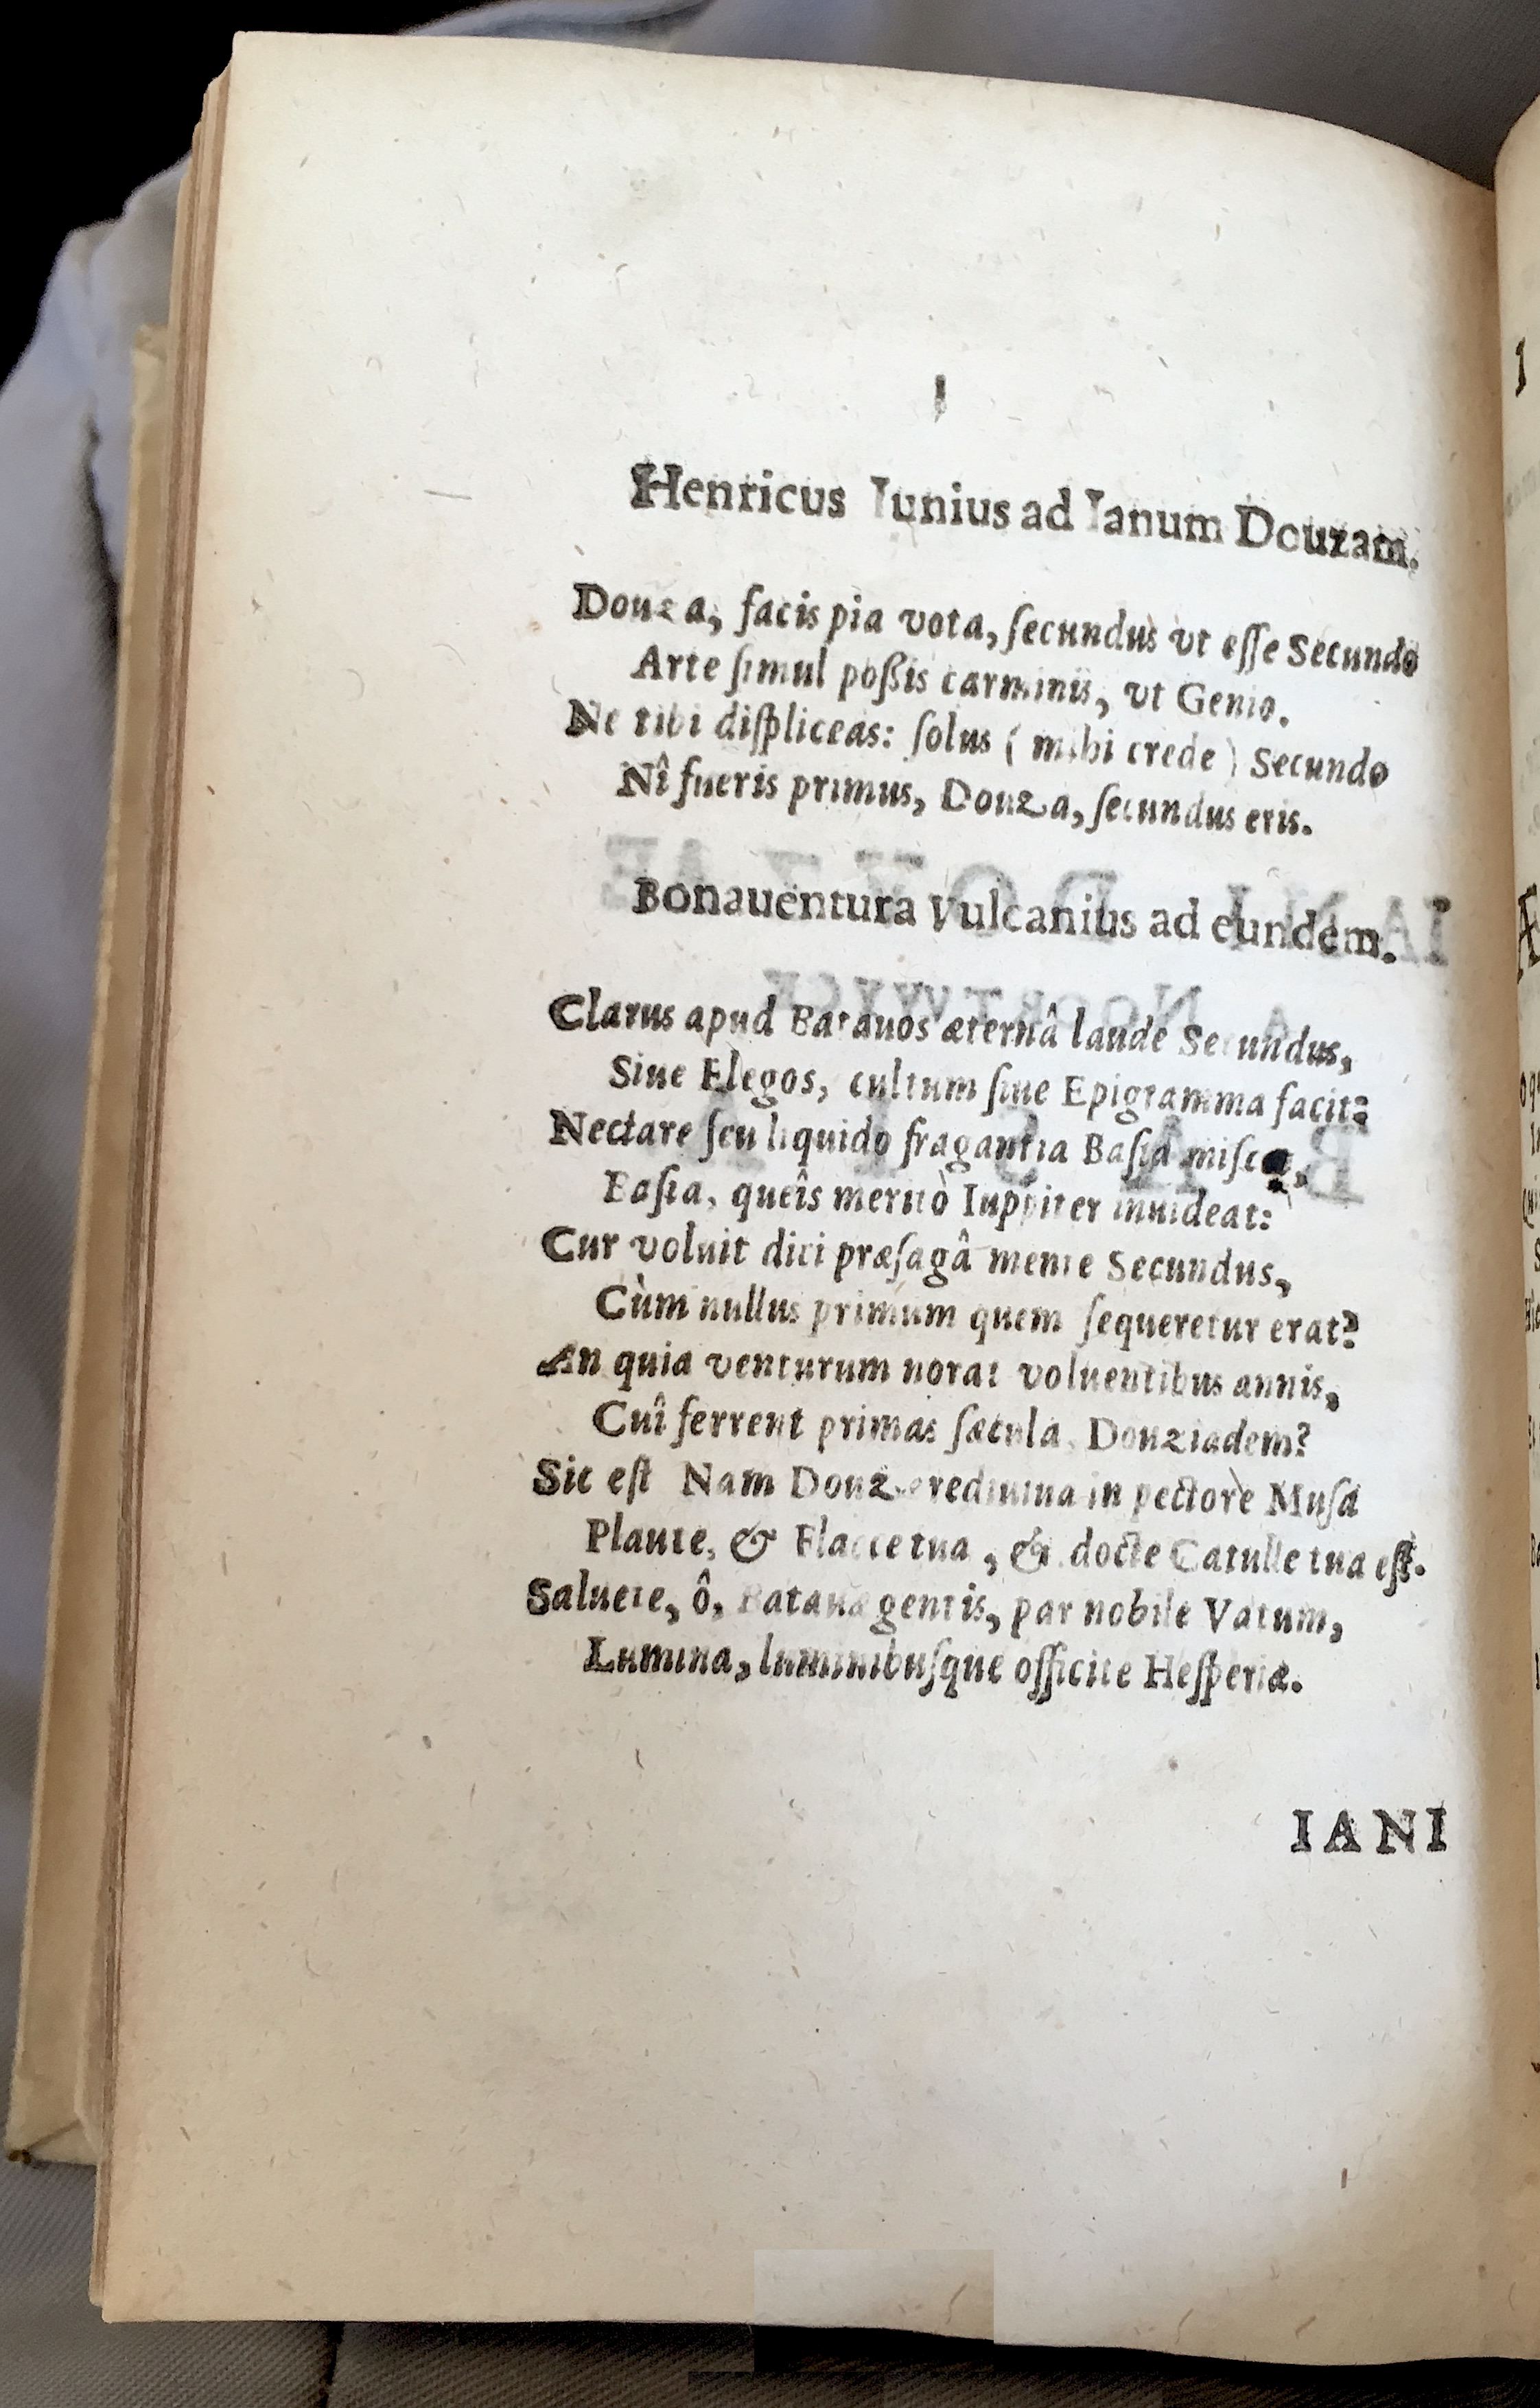 Henricus Iunius ad Ianum Douzam.
Douza, facis pia vota, ſecundus vt eſſe Secundo
Arte ſimul poßis carminis, vt Genio.
Ne tibi diſpliceas: ſolus ( mihi crede ) Secundo
Nî fueris primus, Douza, ſecundus eris.
Bonauentura Vulcanius ad eundem.
Clarus apud Batauos æternâ laude Secundus,
Siue Elegos, cultum ſiue Epigramma facit:
Nectare ſeu liquido fragantia Baſia miſcet,
Baſia, queîs meritò Iuppiter inuideat:
Cur voluit dici præſagâ mente Secundus,
Cùm nullus primum quem ſequeretur erat?
An quia venturum norat voluentibus annis,
Cuî ferrent primas ſæcula, Douziadem?
Sic eſt Nam Douzæ rediuiua in pectore Muſa
Plaute, & Flacce tua, & docte Catulle tua eſt.
Saluete, ô, Batauæ gentis, par nobile Vatum,
Lumina, luminibuſque officite Heſperiæ.
IANI